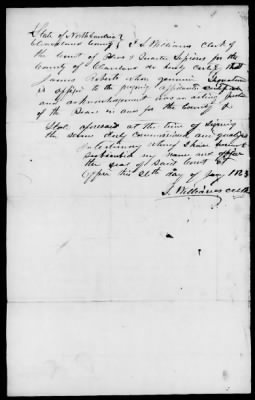 State of North Carolina
Cleaveland County } I S. Williams clerk of
the Court of Pleas & Quarter Sessions for the
County of Cleaveland do hereby certify that
James Roberts whose genuine Signature
is affixed to the foregoing affidavits
and acknowledgement was an acting Justice
of the Peace in and for the County &
State aforesaid at the time of signing
the same duly commissioned and qualified
In testimony whereof I have hereunto
subscribed my name and affixed
the seal of said Court at
Office this 26th day of Jany
S. Williams clk